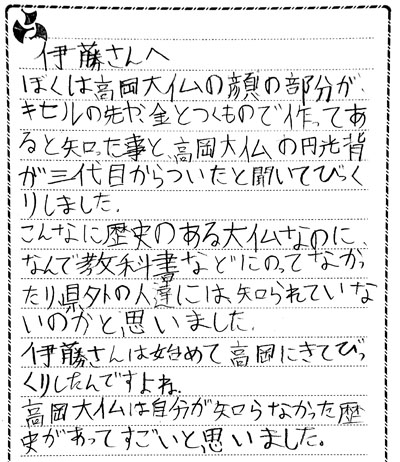 伊藤さんへ
ぼくは高岡大仏の顔の部分が、
キセルの先か金とつくもので作ってあ
ると知った事と、高岡大仏の円光背
が三代目からついたと聞いてびっく
りしました。
こんなに歴史のある大仏なのに、
なんで教科書などにのってなかっ
たり県外の人達には知られていな
いのかと思いました。
伊藤さんは始めて高岡にきてびっ
くりしたんですよね。
高岡大仏は自分が知らなかった歴
史があってすごいと思いました。